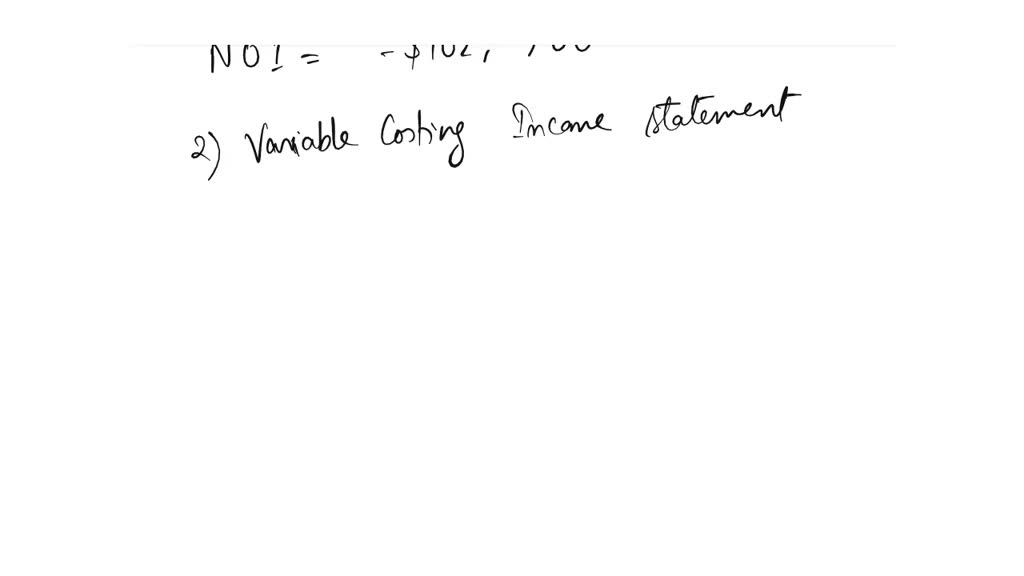 NOI = -$102,
2) Variable Costing Income statement